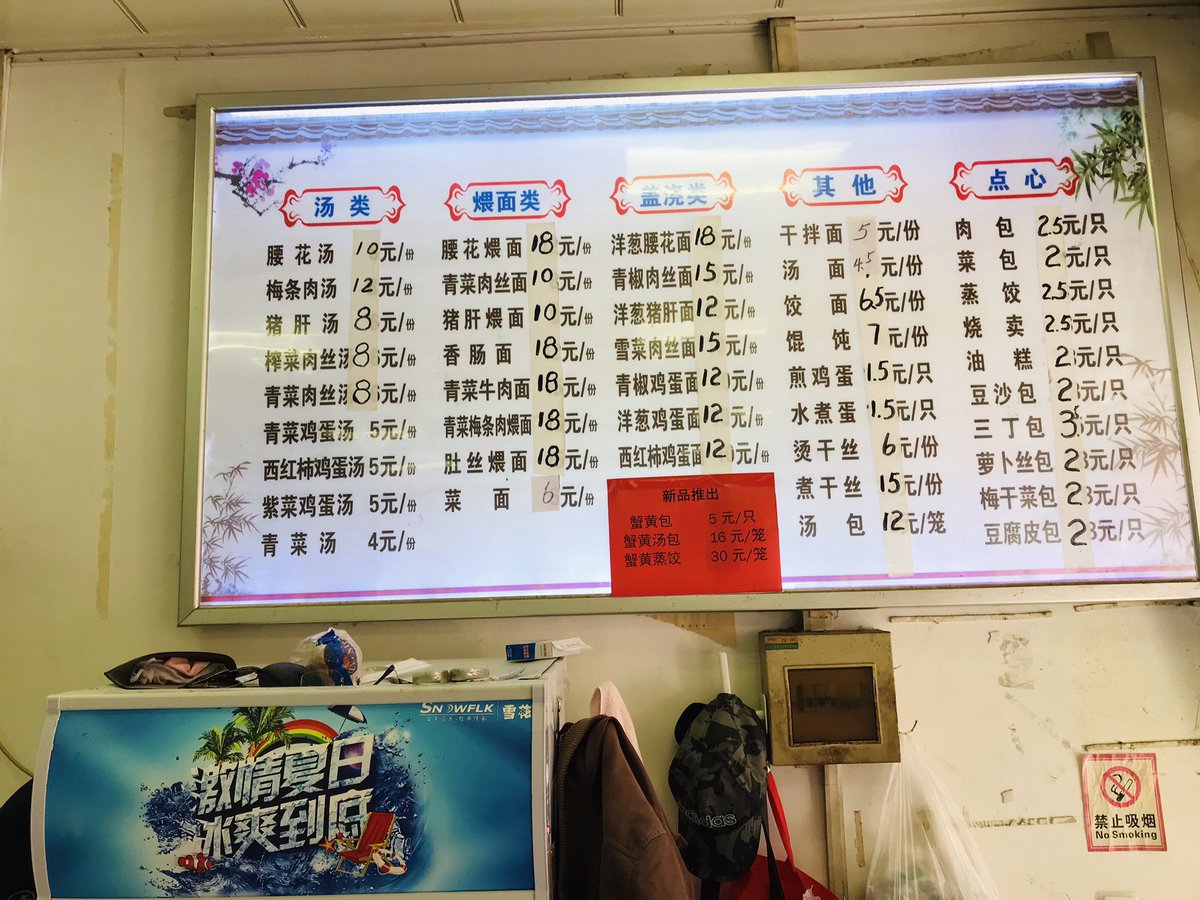 汤类
腰花汤 10元/份
梅条肉汤 12元/份
猪肝汤 8元/份
榨菜肉丝汤 8元/份
青菜肉丝汤 8元/份
青菜鸡蛋汤 5元/份
西红柿鸡蛋汤 5元/份
紫菜鸡蛋汤 5元/份
青菜汤 4元/份
煨面类
腰花煨面 18元/份
青菜肉丝面 10元/份
猪肝煨面 10元/份
香肠面 18元/份
青菜牛肉面 18元/份
青菜梅条肉煨面 18元/份
肚丝煨面 18元/份
菜面 6元/份
盖浇类
洋葱腰花面 18元/份
青椒肉丝面 15元/份
洋葱猪肝面 12元/份
雪菜肉丝面 15元/份
青椒鸡蛋面 12元/份
洋葱鸡蛋面 12元/份
西红柿鸡蛋面 12元/份
新品推出
蟹黄包 5元/只
蟹黄汤包 16元/笼
蟹黄蒸饺 30元/笼
其他
干拌面 5元/份
汤面 4.5元/份
饺面 6.5元/份
馄饨 7元/份
煎鸡蛋 1.5元/只
水煮蛋 1.5元/只
烫干丝 6元/份
煮干丝 15元/份
汤包 12元/笼
点心
肉包 2.5元/只
菜包 2元/只
蒸饺 2.5元/只
烧卖 2.5元/只
油糕 2元/只
豆沙包 2元/只
三丁包 3元/只
萝卜丝包 2元/只
梅干菜包 2元/只
豆腐皮包 2元/只
SNOWFLK 雪花
激情夏日
冰爽到底
adidas
禁止吸烟
No Smoking